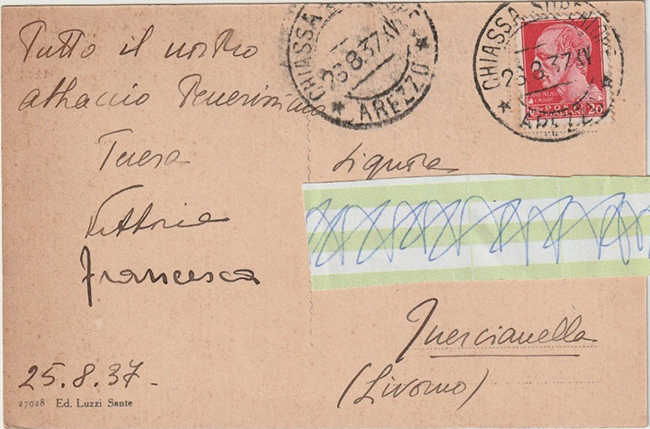 Tutto il nostro
abbraccio Tenerissimo
Teresa
Vittoria
Francesca
25.8.37-
27928 Ed. Luzzi Sante
CHIASSA SUPERIORE
26.8.37 XV
★ AREZZO ★
CHIASSA SUPERIORE
26.8.37 XV
★ AREZZO
POSTE ITALIANE 20
Signora
Quercianella
(Livorno)